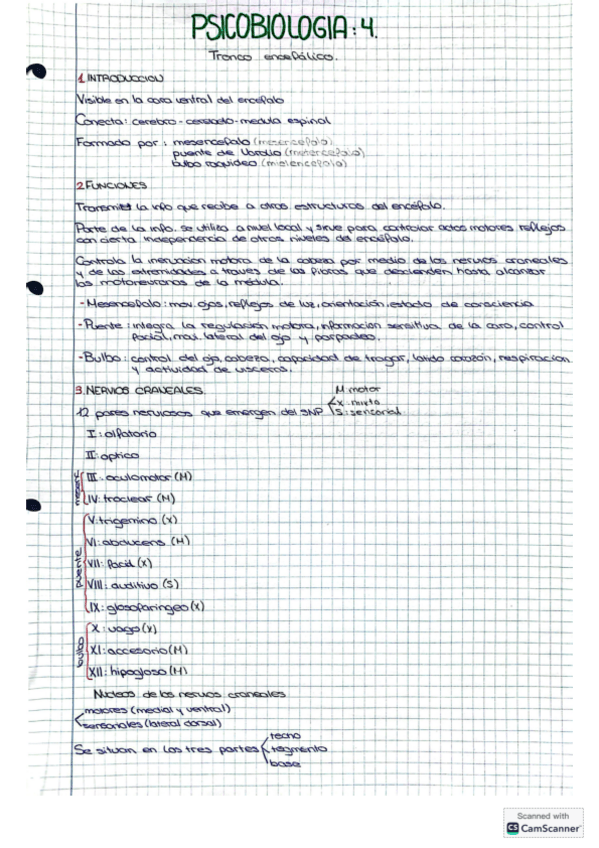 PSICOBIOLOGIA: 4.
Tronco encefálico.
1. INTRODUCCION
Visible en la cara ventral del encefalo
Conecta: cerebro - cerebelo - medula espinal
Formado por: mesencefalo (mesencefalo)
puente de Varolio (metencefalo)
bulbo raquideo (mielencefalo)
2. FUNCIONES
Transmitet la info que recibe a otras estructuras del encéfalo.
Parte de la info. se utiliza a nivel local y sirve para controlar actos motores reflejos
con cierta independencia de otros niveles del encéfalo.
Controla la inervacion motora de la cabeza por medio de los nervios craneales
y de las extremidades a traves de las fibras que descienden hasta alcanzar
las motoneuronas de la médula.
- Mesencefalo: mov. ojos, reflejos de luz, orientación, estado de consciencia
- Puente: integra la regulación motora, informacion sensitiva de la cara, control
facial, mov. lateral del ojo y parpadeo.
- Bulbo: control del ojo, cabeza, capacidad de tragar, latido corazón, respiración
y actividad de visceras.
3. NERVIOS CRANEALES
M: motor
12 pares nerviosos que emergen del SNP
X: mixto
S: sensorial
I: olfatorio
II: optico
III: oculomotor (M)
IV: troclear (M)
V: trigemino (X)
VI: abducens (M)
puente
VII: facial (X)
VIII: auditivo (S)
IX: glosofaringeo (X)
X: vago (X)
bulbo
XI: accesorio (M)
XII: hipogloso (M)
Nucleos de los nervios craneales
motores (medial y ventral)
sensoriales (lateral dorsal)
Se situan en las tres partes
tecno
tegmento
base
Scanned with
CS CamScanner